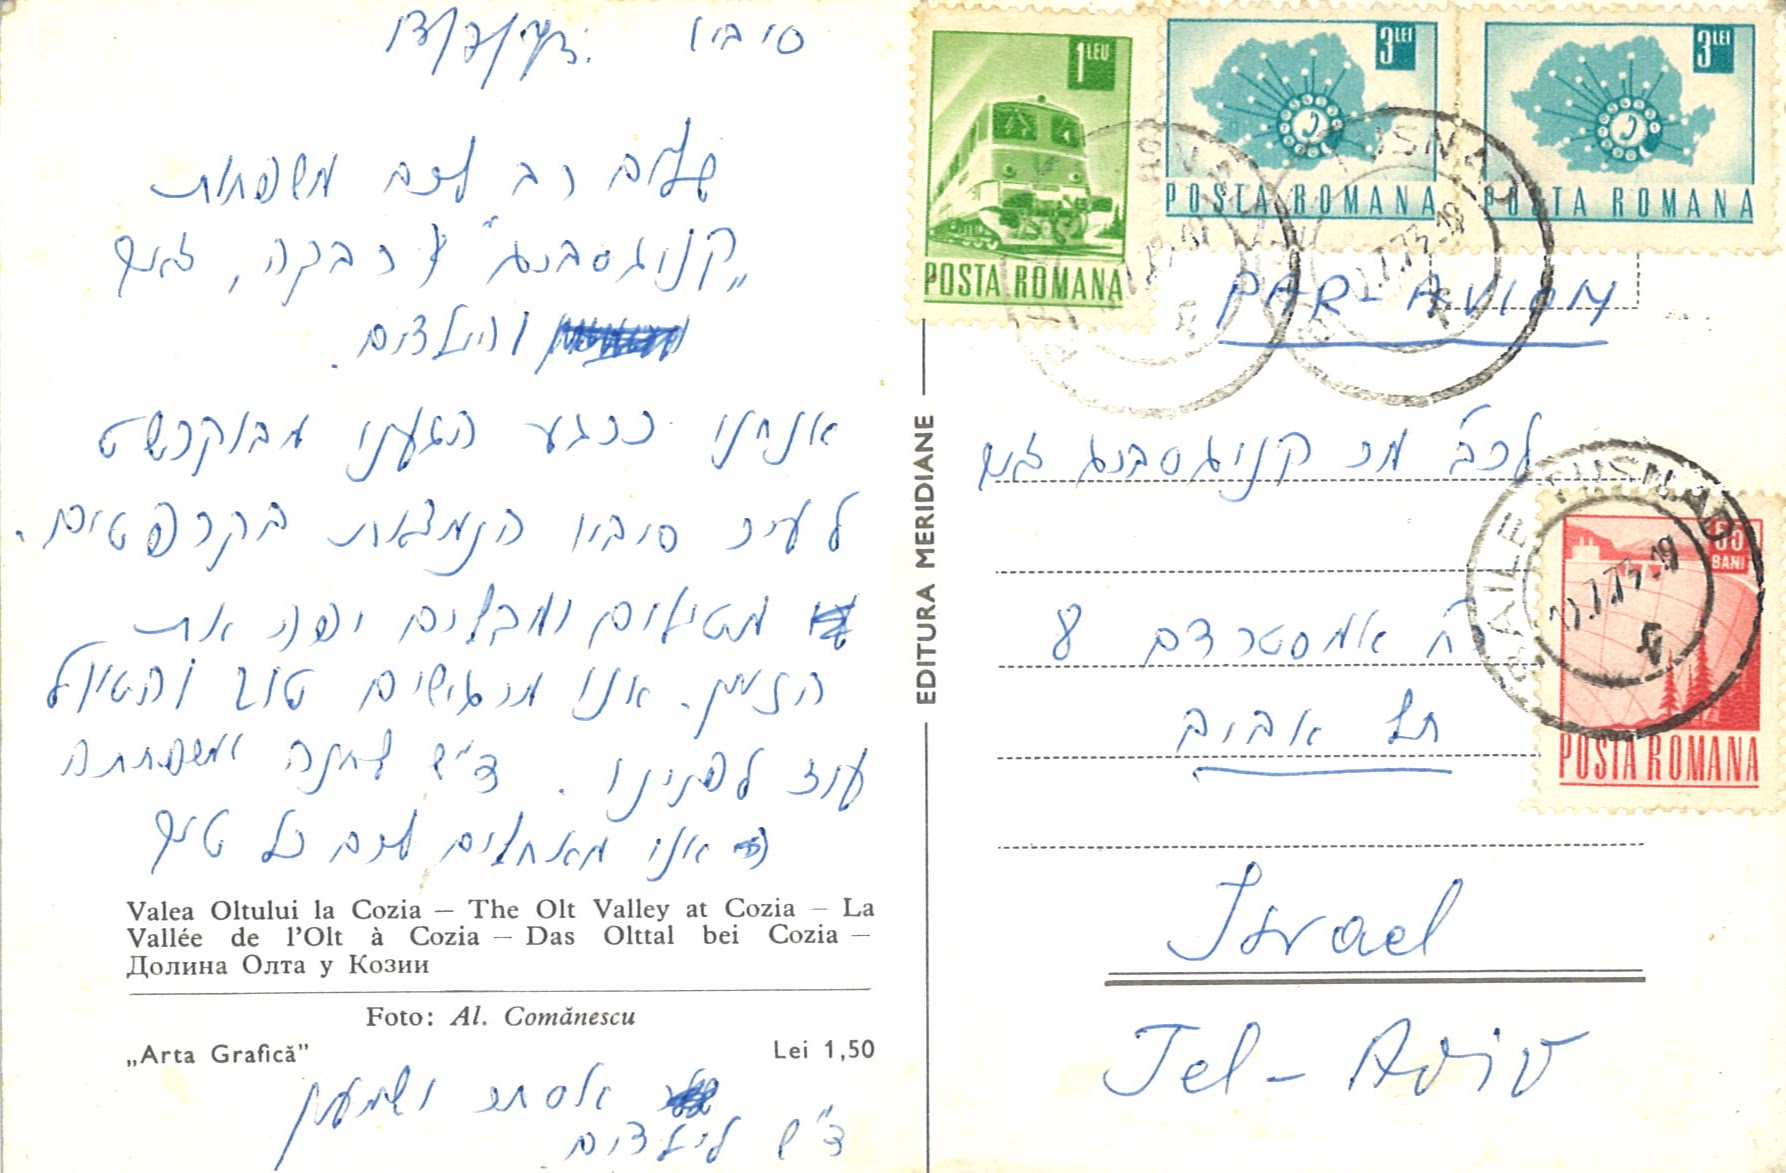 סיביו
שלום רב לכב' משפחת
"קניגסברג" רבקה, זאב
והילדים.
אנחנו כרגע הגענו מבוקרשט
לעיר סיביו הנמצאת בקרפטים.
מטיילים ומבלים יפה את
הזמן. אנו מרגישים טוב והטיול
עוד לפנינו. ד"ש לחנה ומשפחתה
אנו מאחלים לכם כל טוב
Valea Oltului la Cozia — The Olt Valley at Cozia — La
Vallée de l'Olt à Cozia — Das Olttal bei Cozia —
Долина Олта у Козии
Foto: Al. Comănescu
„Arta Grafică" Lei 1,50
אסתר ושמעון
ד"ש לילדים
EDITURA MERIDIANE
1 LEU
POSTA ROMANA
3 LEI
POSTA ROMANA
3 LEI
POSTA ROMANA
TUSNAD
PAR-AVION
לכב' מר קניגסברג זאב
רח אמסטרדם 8
תל אביב
55 BANI
POSTA ROMANA
BAILE TUSNAD
Israel
Tel-Aviv